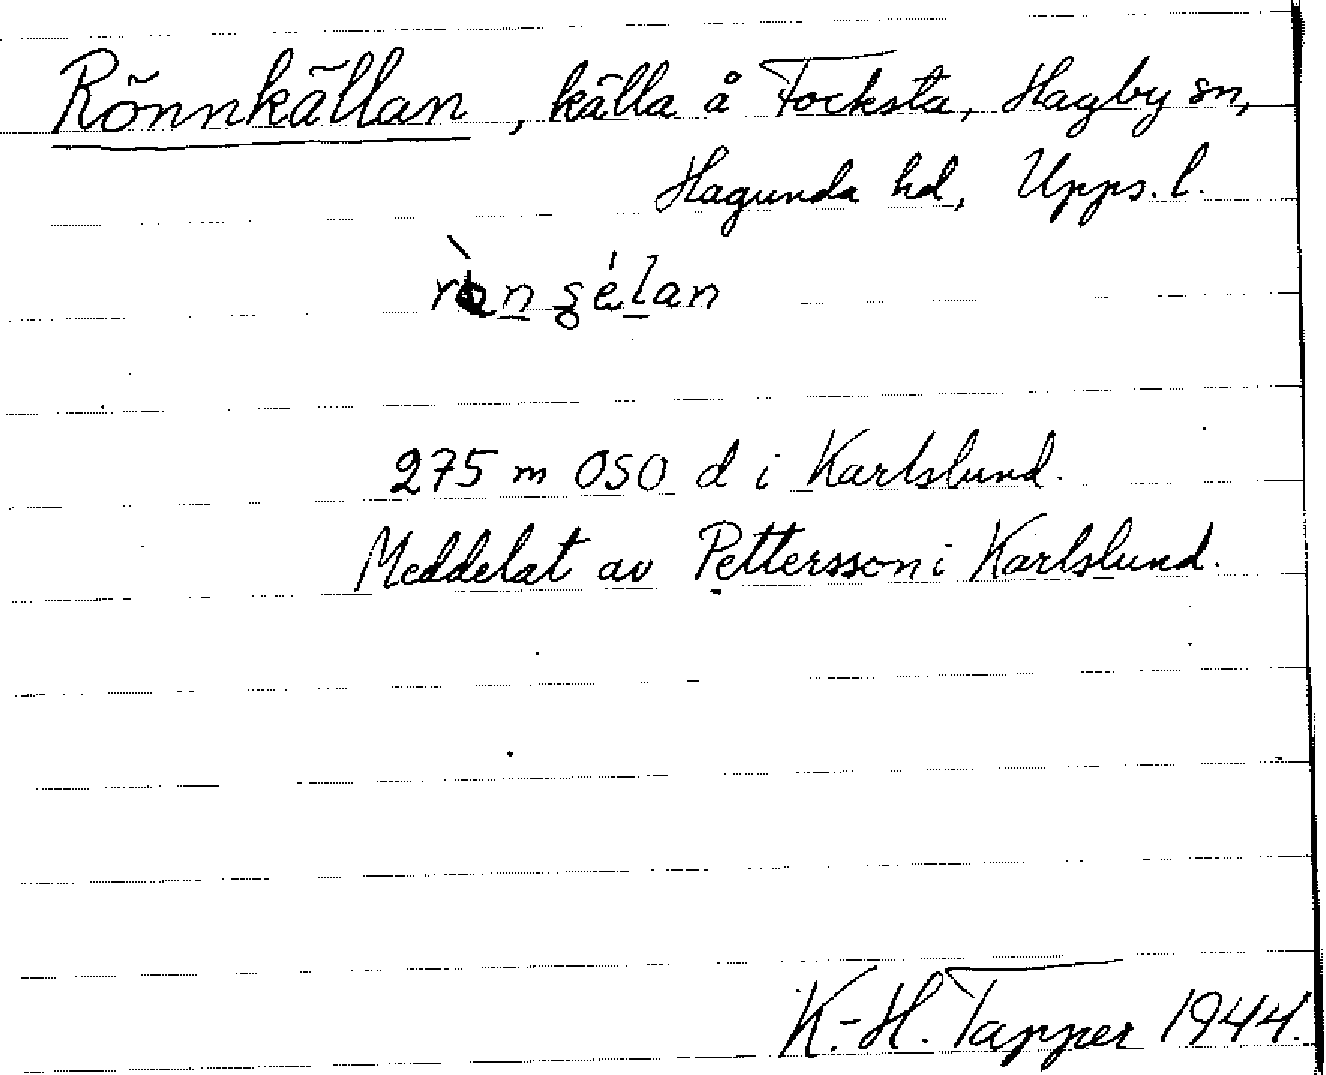 Rönnkällan, källa å Focksta, Hagby sn,
Hagunda hd, Upps. l.
275 m OSO d i Karlslund.
Meddelat av Pettersson i Karlslund.
K.-H. Tapper 1944.